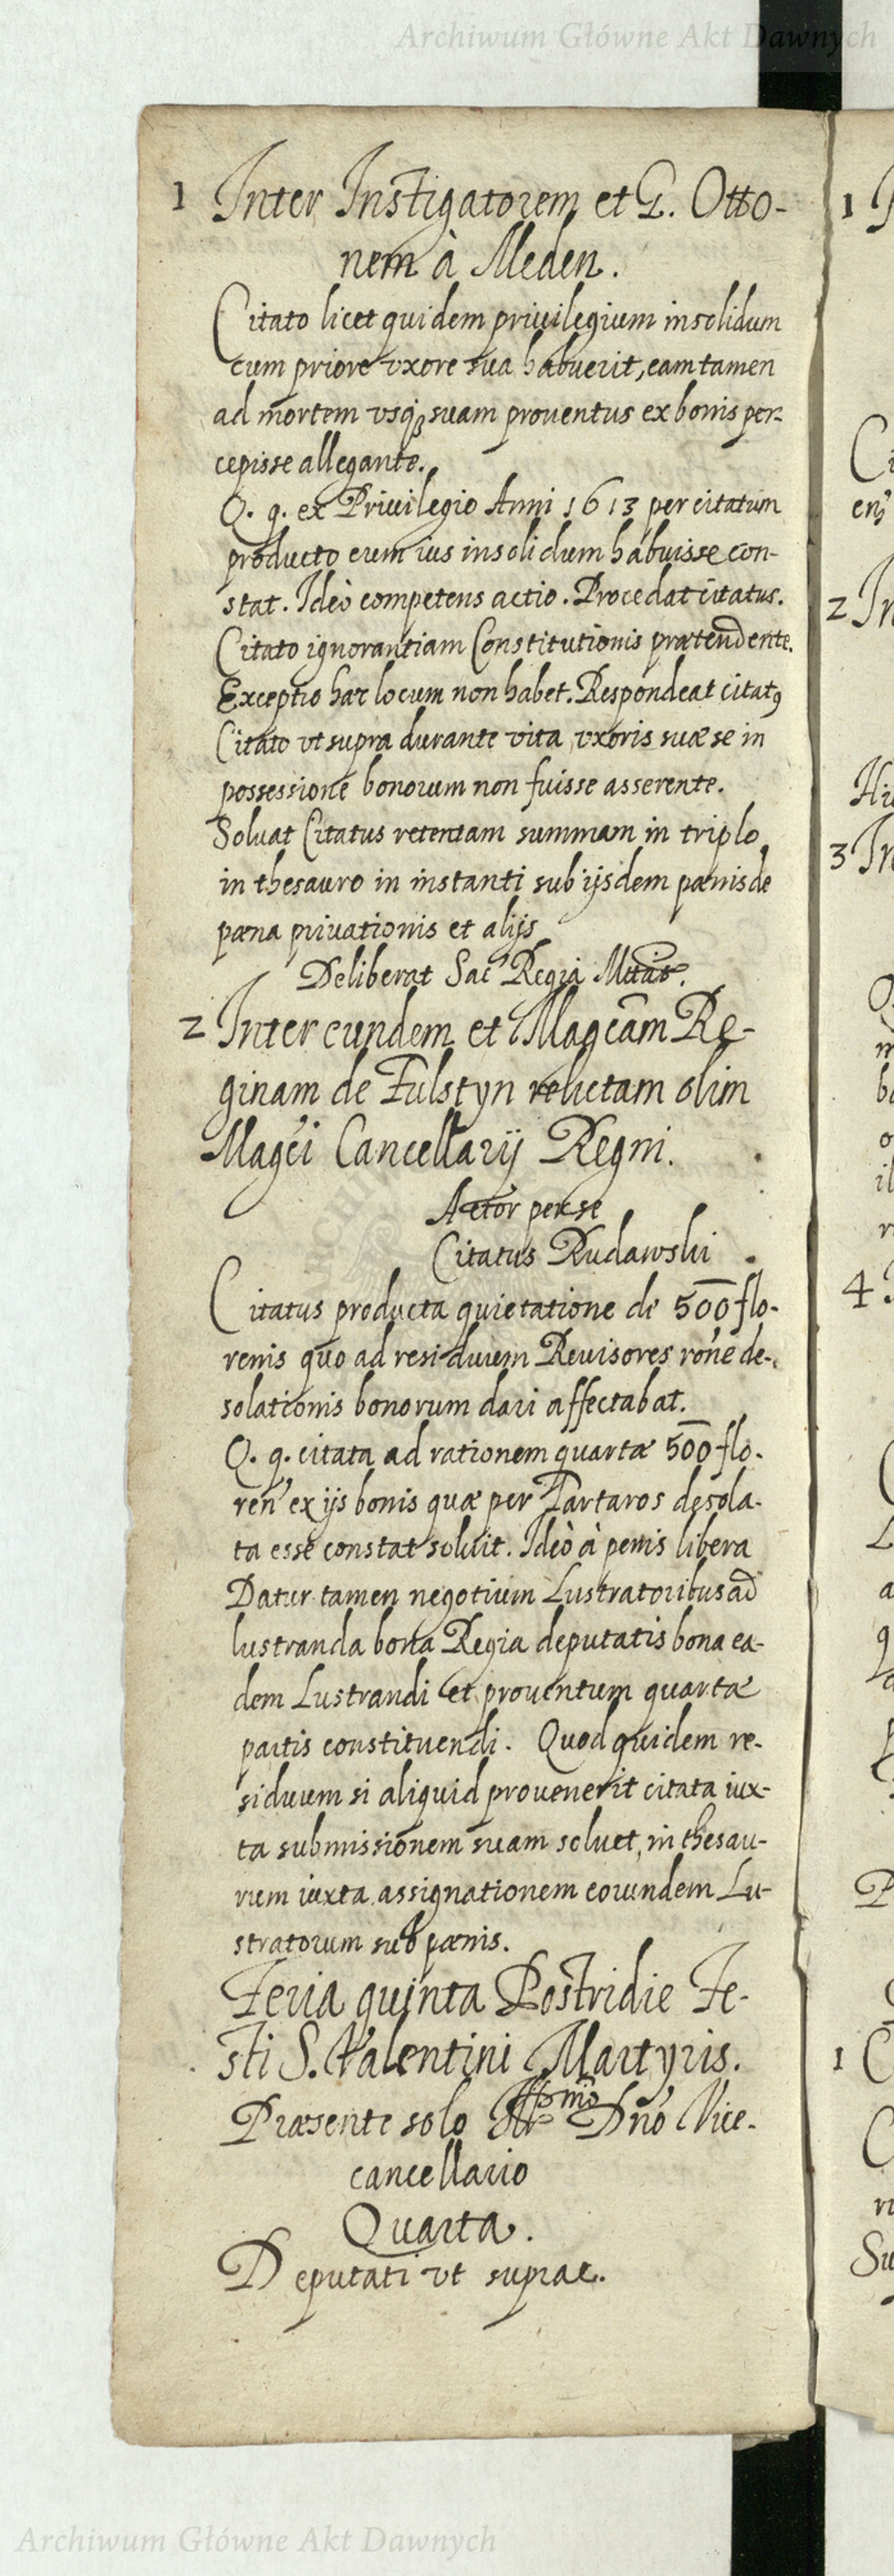 Archiwum Główne Akt Dawnych
1 Inter Instigatorem et G. Otto-
nem à Meden.
Citato licet quidem privilegium insolidum
cum priore vxore sua habuerit, eam tamen
ad mortem vsq; suam proventus ex bonis per-
cepisse allegante.
Q. q. ex Privilegio Anni 1613 per citatum
producto eum ius insolidum habuisse con-
stat. Ideò competens actio. Procedat citatus.
Citato ignorantiam Constitutionis prætendente.
Exceptio hæc locum non habet. Respondeat citatꝰ
Citato vt supra durante vita vxoris suæ se in
possessione bonorum non fuisse asserente.
Soluat Citatus retentam summam in triplo
in thesauro in instanti sub ijsdem pœnis de
pœna privationis et alijs
Deliberat Sac Regia Mttas.
2 Inter eundem et Magcam Re-
ginam de Fulstyn relictam olim
Magci Cancellarij Regni.
Actor per se
Citatus Rudawski
Citatus producta quietatione de 500 flo-
renis quo ad residuum Revisores rõne de-
solationis bonorum dari affectabat.
Q. q. citata ad rationem quartæ 500 flo-
ren ex ijs bonis quæ per Tartaros desola-
ta esse constat soluit. Ideò à penis libera
Datur tamen negotium Lustratoribus ad
lustranda bona Regia deputatis bona ea-
dem Lustrandi et proventum quartæ
partis constituendi. Quod quidem re-
siduum si aliquid provenerit citata iux-
ta submissionem suam soluet, in thesau-
rum iuxta assignationem eorundem Lu-
stratorum sub pœnis.
Feria quinta Postridie Fe-
sti S. Valentini Martyris.
Præsente solo Dno Vice-
cancellario
Quarta.
Deputati vt supræ.
1
Ci
en
2 In
Hi
3 In
4
1 C
Su
Archiwum Główne Akt Dawnych